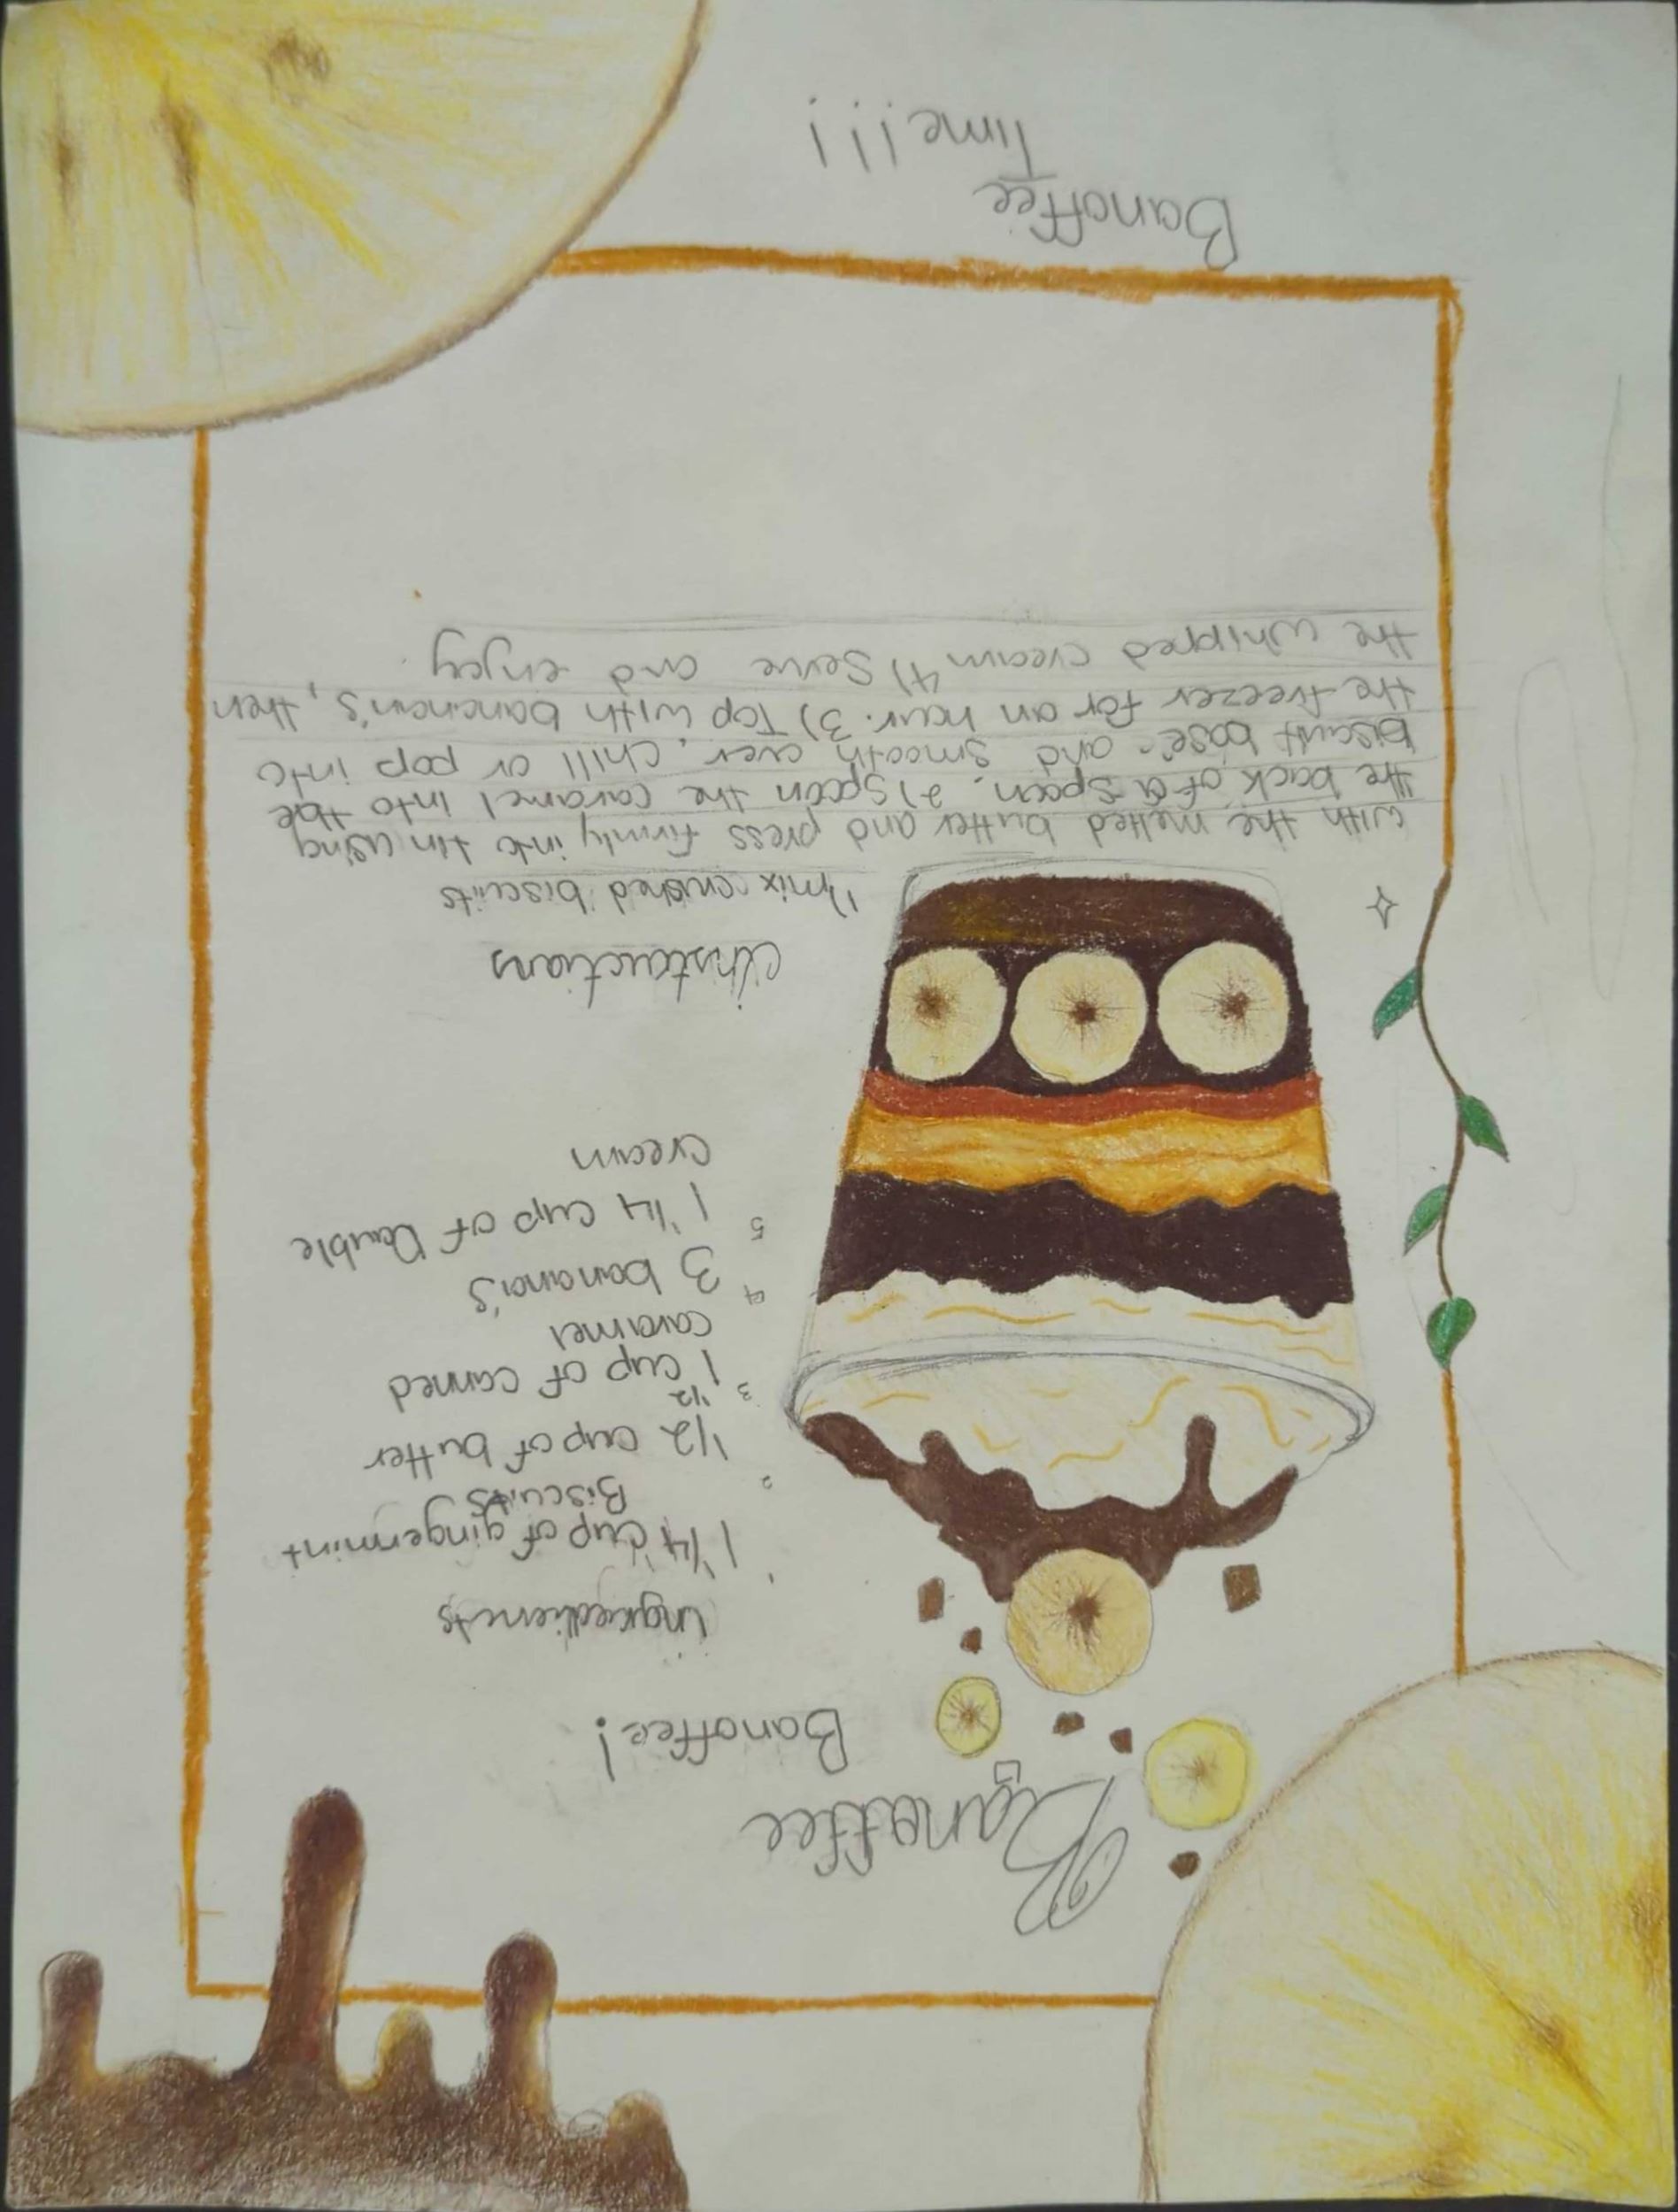 Banoffee
Banoffee!
ingredients
1 1/4 cup of gingermint
Biscuits
2 1/2 cup of butter
3 1 1/2 cup of canned
caramel
4 3 banana's
5 1 1/4 cup of Double
cream
instructions
1) mix crushed biscuits
with the melted butter and press firmly into tin using
the back of a spoon. 2) Spoon the caramel into the
biscuit base and smooth over. Chill or pop into
the freezer for an hour. 3) Top with banana's, then
the whipped cream 4) Serve and enjoy.
Banoffee
Time!!!